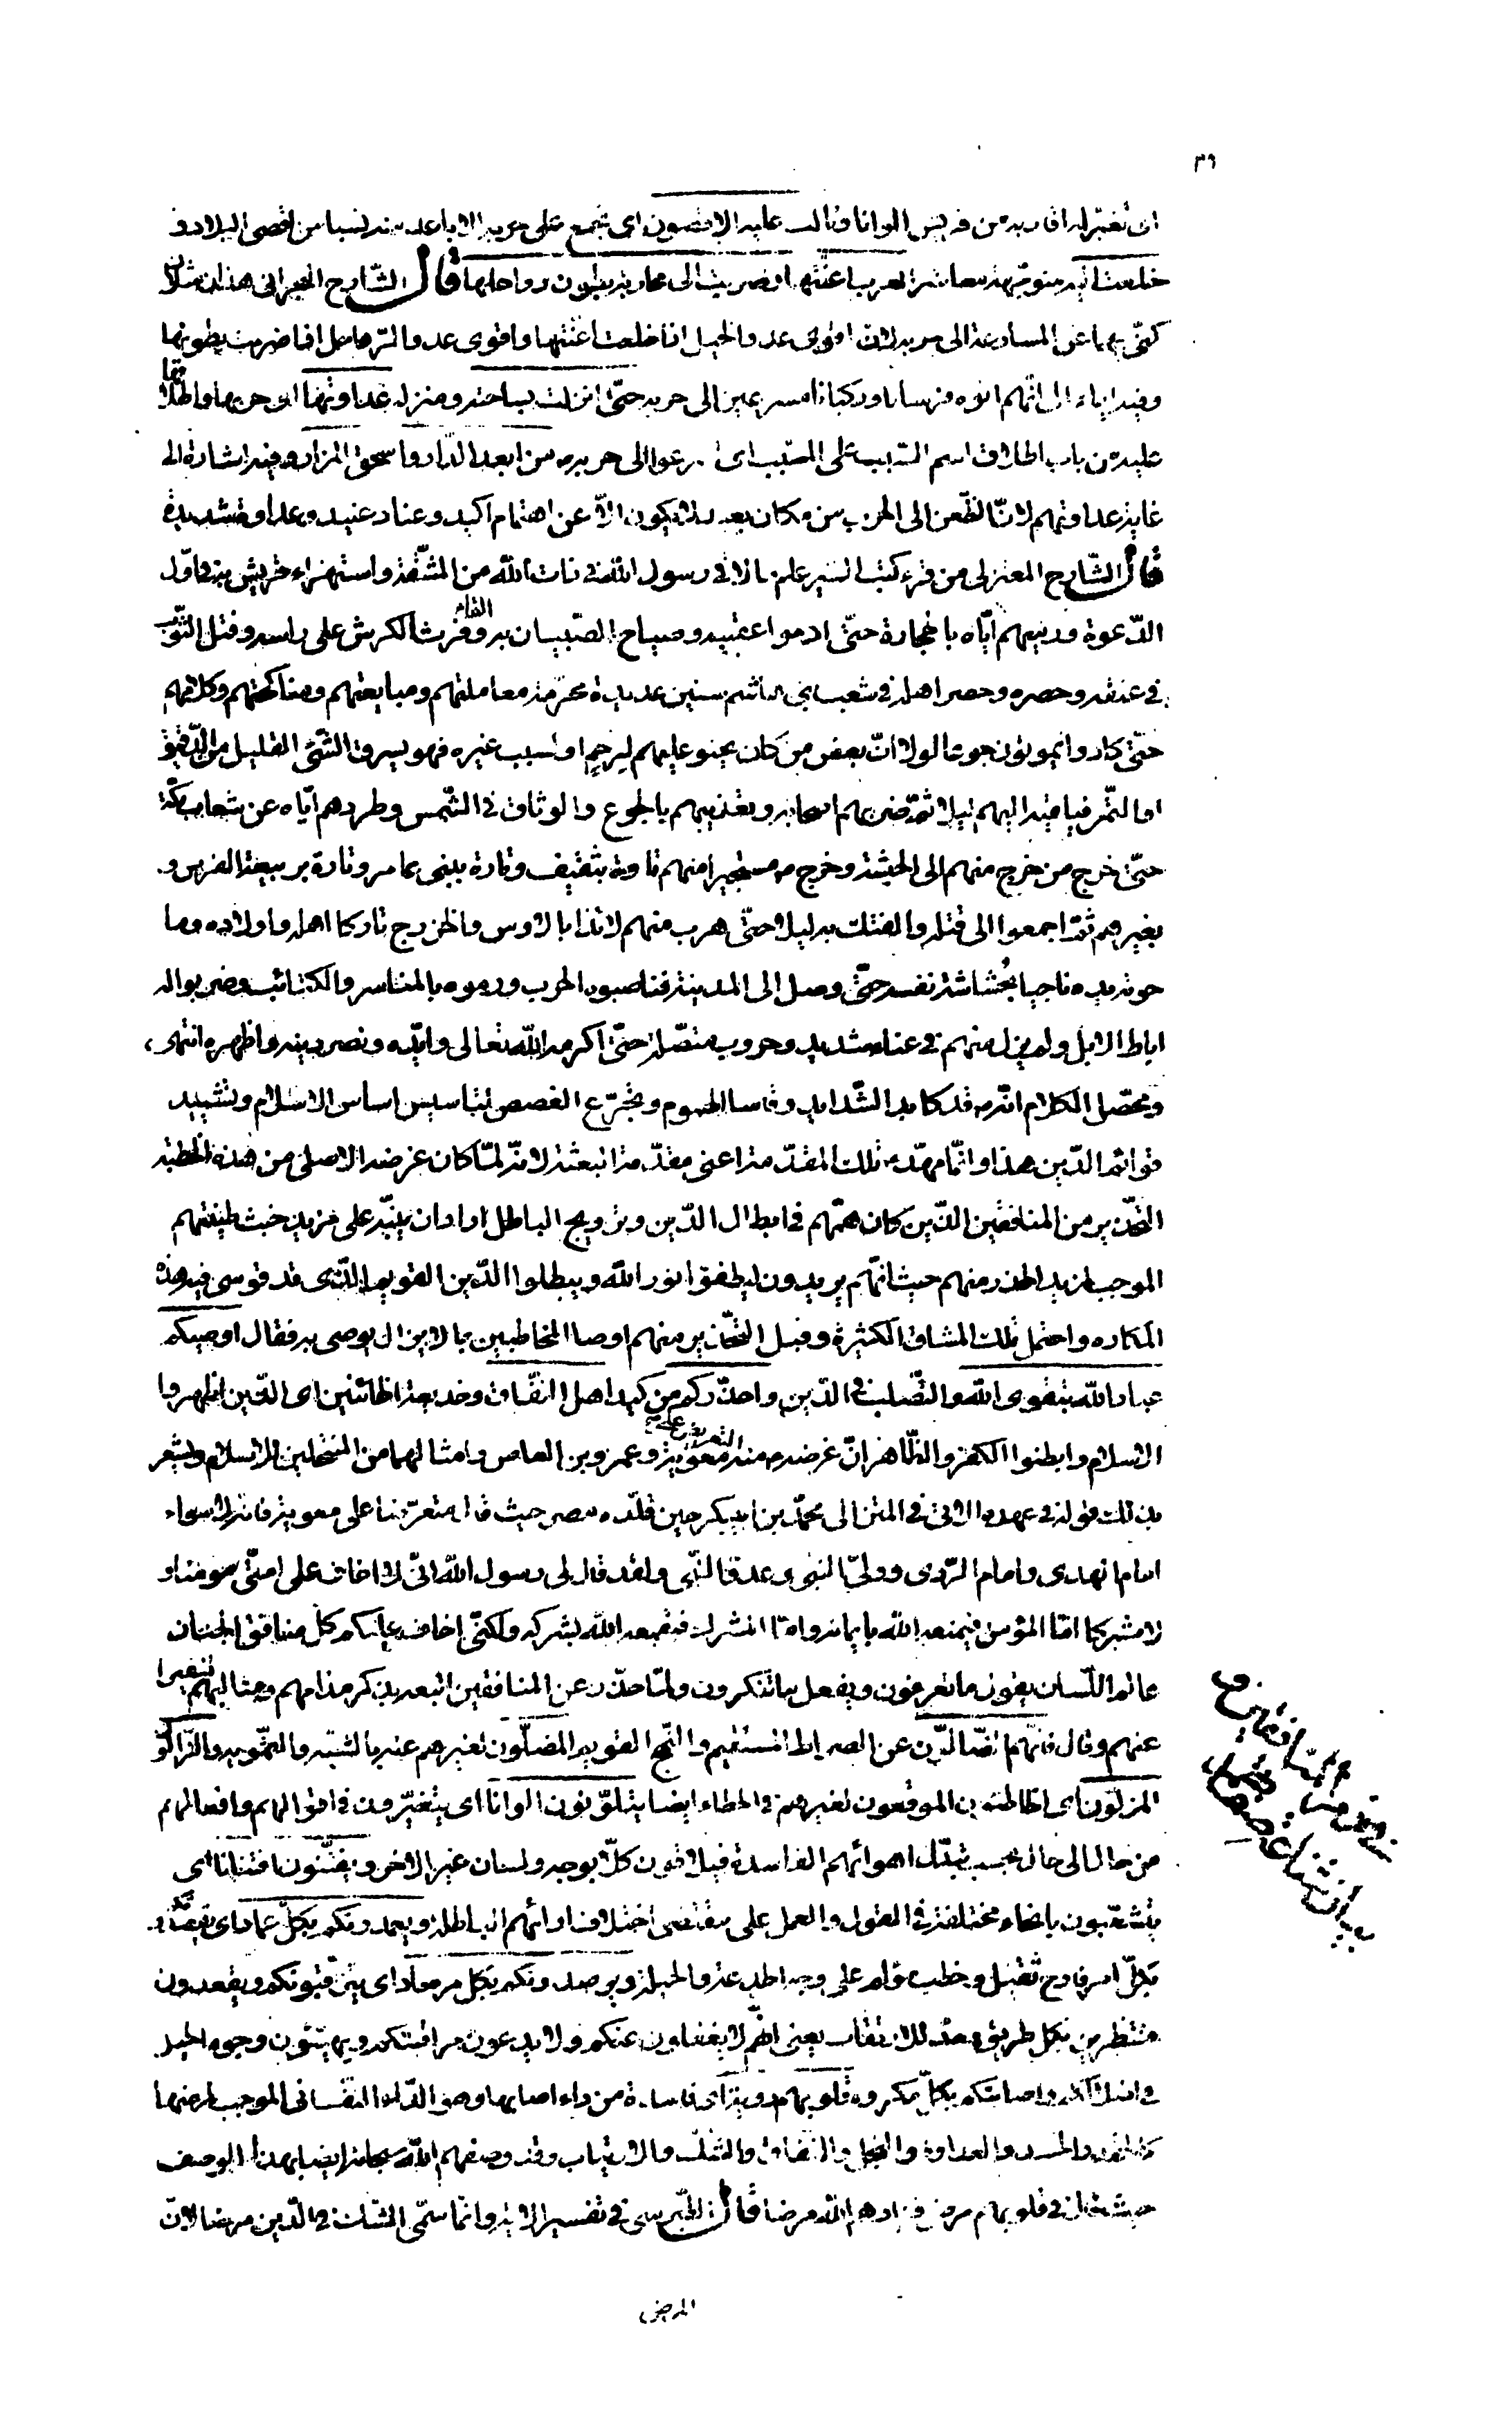 ٣٦
اى تغيّر له اقاربه من قريش الوانا وتألب عليه الاقصون اى تجمع على حربه الاباعد منه نسبا من اقصى البلاد و
خلعت اليه متوجّهة معاشر العرب اعنّتها وضربت الى محاربته بطون رواحلها قال الشّارح البحرانى هذان مثلان
كنّى بهما عن المسارعة الى حربه لان اقوى عدو الخيل اذا خلعت اعنّتها واقوى عدو الرّواحل اذا ضربت بطونها
وفيه ايماء الى انّهم اتوه فرسانا وركبانا مسرعين الى حربه حتّى انزلت بساحته ومنزله عداوتها اى حربها واطلاقها
عليه من باب اطلاق اسم السّبب على المسبّب اى اسرعوا الى حربه من ابعد الدّار واسحق المزار وفيه اشارة الى
غاية عداوتهم لانّ الظّعن الى الحرب من مكان بعيد لا يكون الاّ عن اهتمام اكيد وعناد عنيد وعداوة شديدة
قال الشّارح المعتزلى من قرء كتب السّير علم ما لاقى رسول الله فى ذات الله من المشقّة واستهزاء قريش به فى اوّل
الدّعوة ورميهم ايّاه بالحجارة حتّى ادموا عقبيه وصياح الصّبيان به والقاء فرث الكرش على راسه وفتل الثّوب
فى عنقه وحصره وحصر اهله فى شعب بنى هاشم سنين عديدة محرّمة معاملتهم ومبايعتهم ومناكحتهم وكلامهم
حتّى كادوا يموتون جوعا لولا انّ بعض من كان يحنو عليهم لرحم او لسبب غيره فهو يسرق الشّئ القليل من الدّقيق
او التّمر فيلقيه اليهم ليلا ثمّ ضربهم اصحابه وتعذيبهم بالجوع والوثاق فى الشّمس وطردهم ايّاه عن شعاب مكّة
حتّى خرج من خرج منهم الى الحبشة وخرج ص مستجيرا منهم تارة بثقيف وتارة ببنى عامر وتارة بربيعة الفرس و
بغيرهم ثمّ اجمعوا الى قتله والفتك به ليلا حتّى هرب منهم لائذا بالاوس والخزرج تاركا اهله واولاده وما
حوته يده ناجيا بحُشاشة نفسه حتّى وصل الى المدينة فناصبوه الحرب ورموه بالمناسر والكتائب وضربوا له
اباط الابل ولم يزل منهم فى عناء شديد وحروب متّصلة حتّى اكرمه الله تعالى وايّده ونصر دينه واظهره انتهى
ومحصّل الكلام انّه ص قد كابد الشّدايد وقاسا الهموم وتجرّع الغصص لتاسيس اساس الاسلام وتشييد
قوائم الدّين هذا وانّما مهّد تلك المقدّمة اعنى مقدّمة البعثة لانّه لمّا كان غرضه الاصلى من هذه الخطبة
التحذير من المنافقين الذّين كان همّتهم فى ابطال الدّين وترويج الباطل اراد ان ينبّه على مزيد خبث طينتهم
الموجب لمزيد الحذر منهم حيث انّهم يريدون ليطفؤا نور الله ويبطلوا الدّين القويم الذّى قد قوسى فيه هذه
المكاره واحتمل تلك المشاق الكثيرة وقبل التّحذير منهم اوصا المخاطبين بما لا يزال يوصى به فقال اوصيكم
عباد الله بتقوى الله والتّصلب فى الدّين واحذّركم من كيد اهل النّفاق وخديعة الخائنين اى الذّين اظهروا
الاسلام وابطنوا الكفر والظّاهر انّ غرضه ص منه التعريض على معوية وعمرو بن العاص وامثالهما من المنتحلين للاسلام ويشعر
بذلك قوله فى عهده الاتى فى المتن الى محمّد بن ابيبكر حين قلّده مصر حيث قال متعرّضا على معوية فانّه لا سواء
امام الهدى وامام الرّدى وولىّ النّبى وعدوّ النّبى ولقد قال لى رسول الله انّى لا اخاف على امتّى مؤمنا و
لا مشركا امّا المؤمن فيمنعه الله بايمانه وامّا المشرك فيقمعه الله بشركه ولكنّى اخاف عليكم كلّ منافق الجنان
عالم اللّسان يقول ما تعرفون ويفعل ما تنكرون ولمّا حذّر عن المنافقين اتبعه بذكر مذامهم ومثالبهم تنفيرا
عنهم وقال فانّهم الضّالّون عن الصراط المستقيم والنّهج القويم المضلّون لغيرهم عنه بالشّبه والتّمويه والزّالّون
المزلّون اى الخاطئون الموقعون لغيرهم فى الخطاء ايضا يتلوّنون الوانا اى يتغيّرون فى اقوالهم وافعالهم
من حال الى حال بحسب تبدّل اهوائهم الفاسدة فيلاقون كلّا بوجه ولسان غير الاخر ويفتنّون افتنانا اى
يتشعّبون بانحاء مختلفة فى القول والعمل على مقتضى اختلاف ارائهم الباطلة ويعمدونكم بكلّ عماد اى
بكلّ امر فادح ثقيل وخطب مولم على وجه الخدعة والحيلة ويرصدونكم بكل مرصاد اى يترقّبونكم ويقعدون
منتظرين بكل طريق معدّ للارتقاب يعنى انّهم لا يغفلون عنكم ولا يدعون مراقبتكم ويهيّئون وجوه الحيل
فى اضلالكم واصابتكم بكلّ مكروه قلوبهم دوية اى فاسدة من داء اصابها وهو الدّاء النّفسانى الموجب لمرضها
كالحقد والحسد والعداوة والبخل والنّفاق والشّك والارتياب وقد وصفهم الله سبحانه ايضا بهذا الوصف
حيث قال فى قلوبهم مرض فزادهم الله مرضا قال الطّبرسى فى تفسير الاية وانّما سمّى الشّك فى الدّين مرضا لانّ
المرض